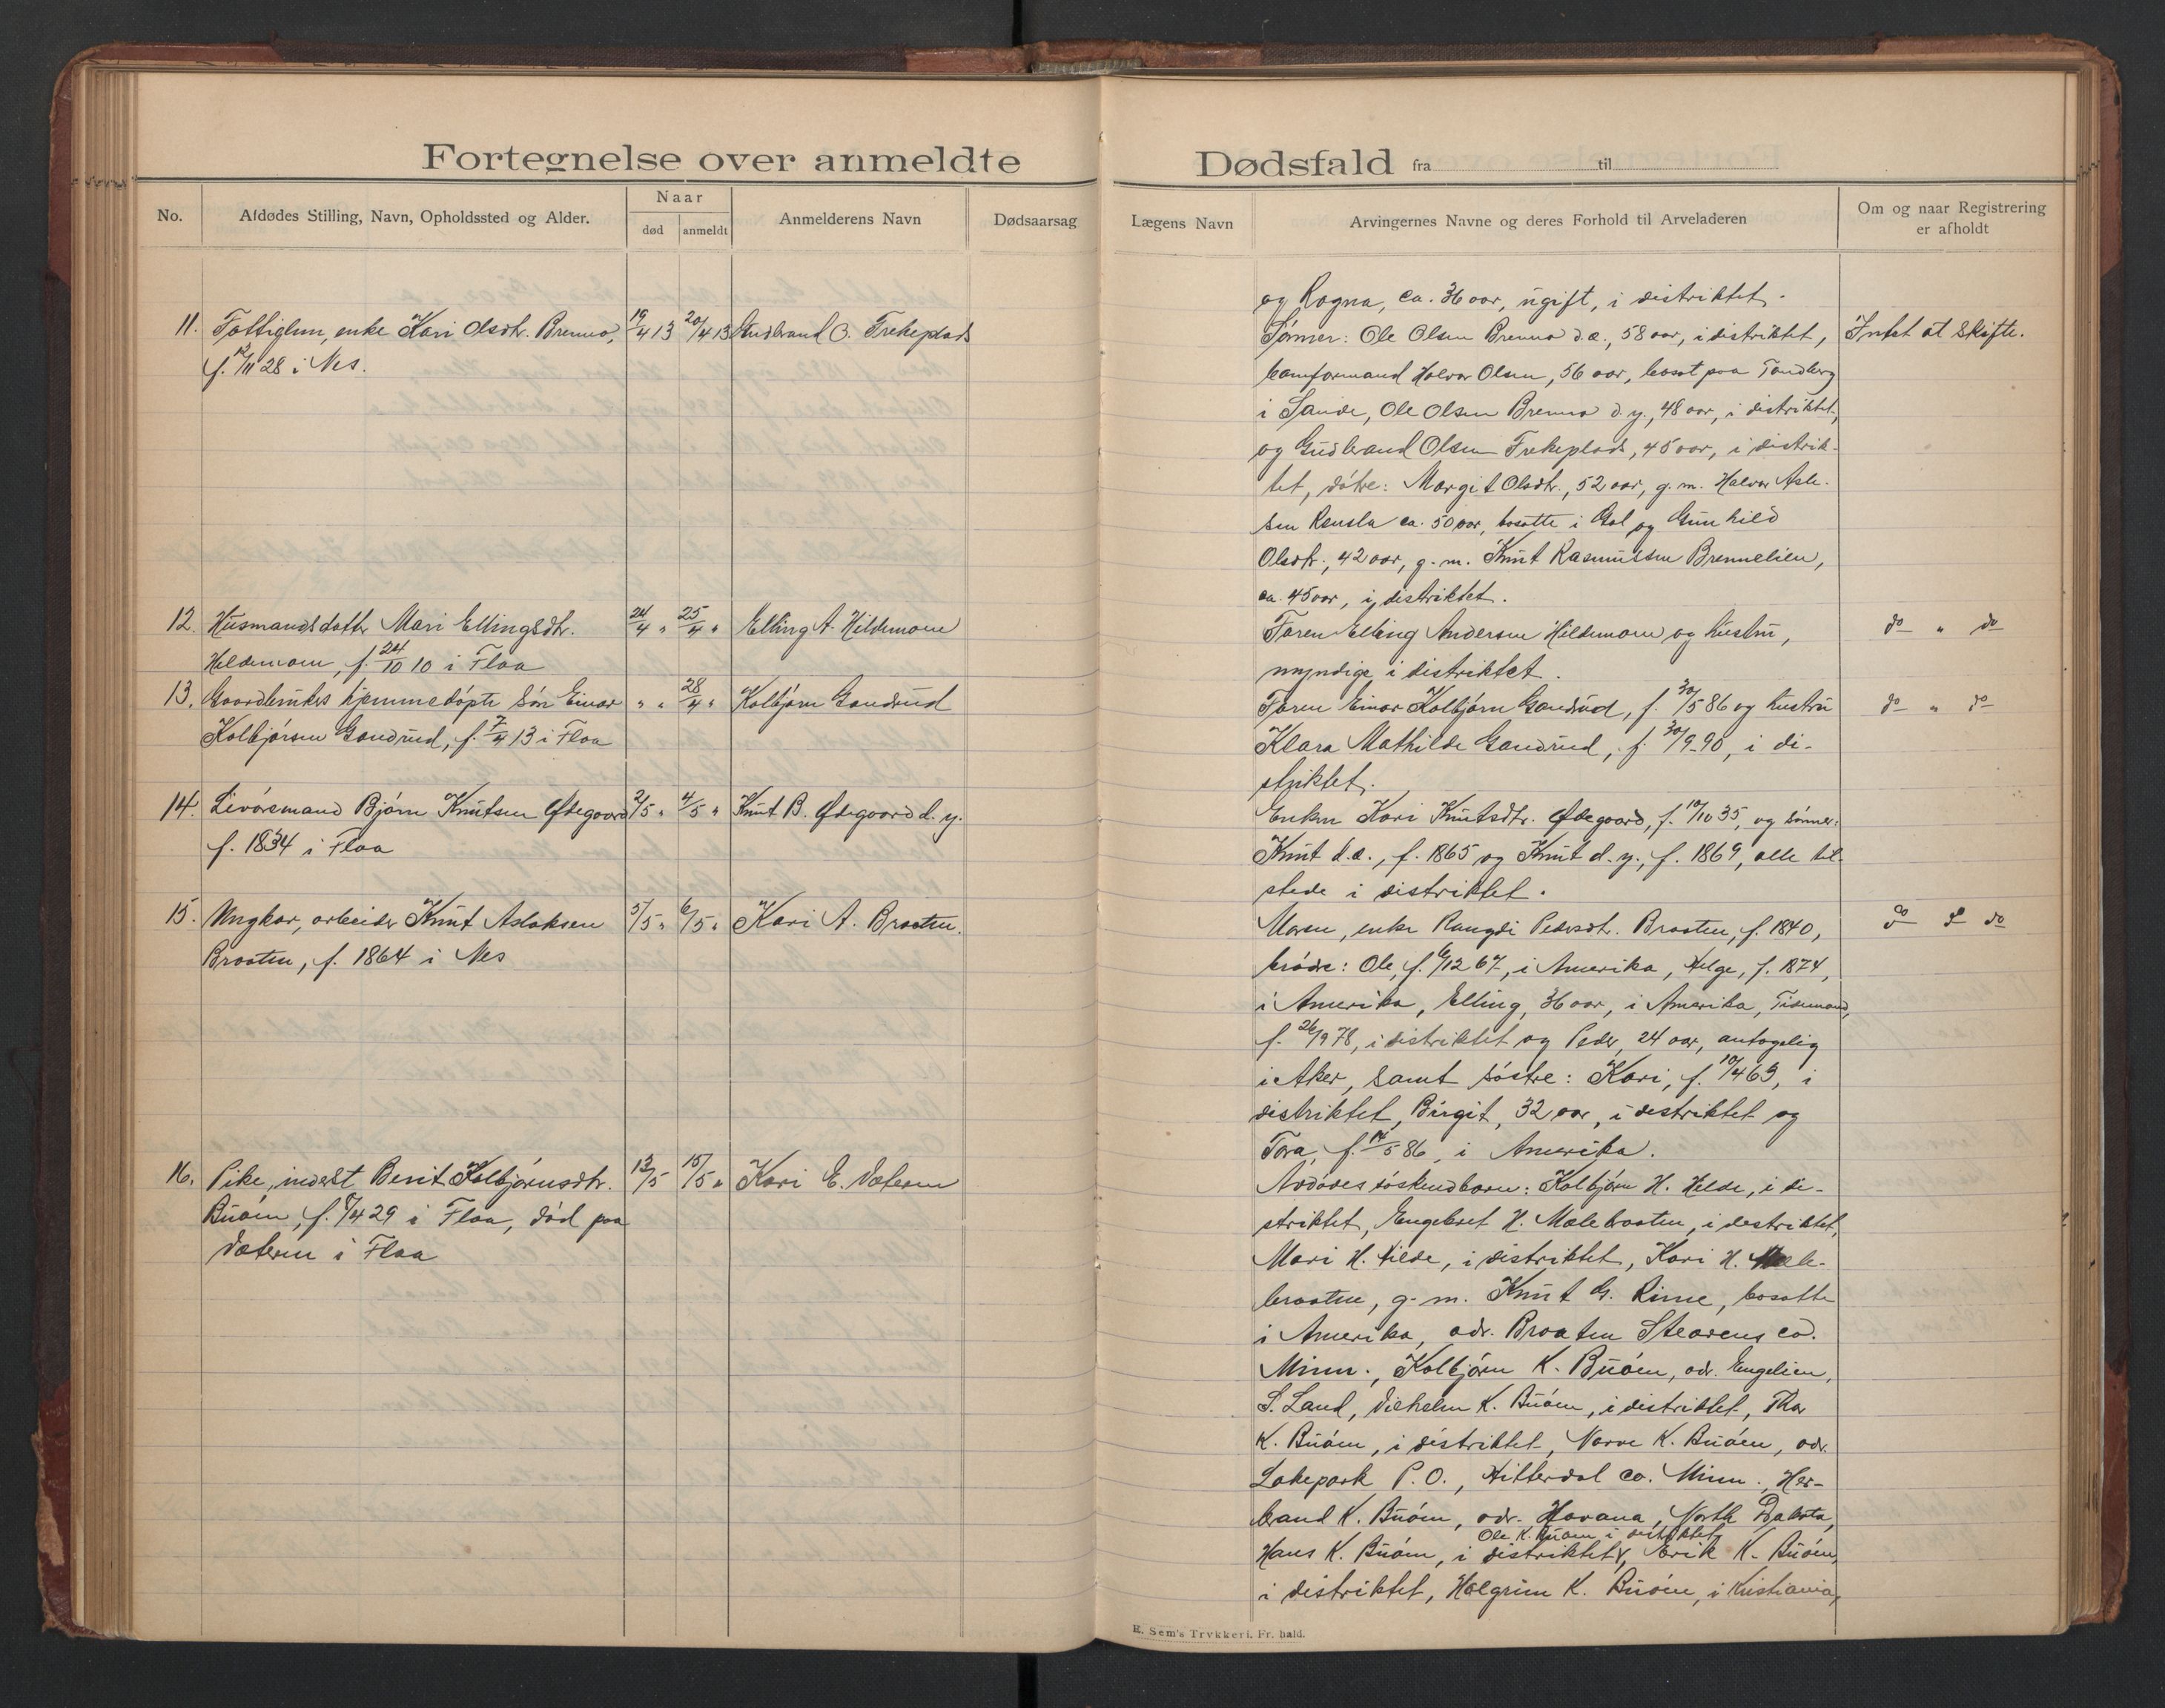 Fortegnelse over anmeldte Dødsfald fra til
No.
Afdødes Stilling, Navn, Opholdssted og Alder.
Naar
død
anmeldt
Anmelderens Navn
Dødsaarsag
Lægens Navn
Arvingernes Navne og deres Forhold til Arveladeren
Om og naar Registrering
er afholdt
11. Fattiglem, enke Kari Olsdtr. Brenno, 19/4 13 20/4 13 Gudbrand O. Trekeplads
f. 12/11 28 i Nes.
12. Husmandsdatter Mari Ellingsdtr. 24/4 " 25/4 " Elling A. Hildemoen
Hildemoen, f. 24/10 10 i Flaa
13. Gaardbrukers hjemmedøpte søn Einar " " 28/4 " Kolbjørn Gandrud
Kolbjørsen Gandrud, f. 7/4 13 i Flaa
14. Livøresmand Bjørn Knutsen Ødegaard 2/5 " 4/5 " Knut B. Ødegaard d. y.
f. 1834 i Flaa
15. Ungkar, arbeider Knut Aslaksen 5/5 " 6/5 " Kari A. Braaten.
Braaten, f. 1864 i Nes
16. Pike, inderst Berit Kolbjørnsdtr. 13/5 15/5 " Kari E. Væteren
Buøen, f. 8/4 29 i Flaa, død paa
Væteren i Flaa
og Ragna, ca. 36 aar, ugift, i distriktet.
Sønner: Ole Olsen Brenno d.æ., 58 aar, i distriktet, Intet at skifte.
banformand Halvor Olsen, 56 aar, bosat paa Tandberg
i Sande, Ole Olsen Brenno d. y., 48 aar, i distriktet,
og Gudbrand Olsen Trekeplads, 45 aar, i distrik-
tet, døtre: Margit Olsdtr., 52 aar, g. m. Halvor Asle-
sen Rensla ca. 50 aar, bosatte i Gol og Gunhild
Olsdtr., 42 aar, g. m. Knut Rasmussen Brennelien,
ca. 45 aar, i distriktet.
Faren Elling Andersen Hildemoen og hustru, do " do
myndige i distriktet.
Faren Einar Kolbjørn Gandrud, f. 30/5 86 og hustru do " do
Klara Mathilde Gandrud, f. 30/9 90, i di-
striktet.
Enken Kari Knutsdtr. Ødegaard, f. 10/10 35, og sønner:
Knut d.æ., f. 1865 og Knut d. y., f. 1869, alle til-
stede i distriktet.
Moren, enke Rangdi Pedersdt. Braaten, f. 1840, do do do
brødre: Ole, f. 6/12 67, i Amerika, Helge, f. 1874,
i Amerika, Elling, 36 aar, i Amerika, Tidemand,
f. 26/9 78, i distriktet og Peder, 24 aar, antagelig
i Aker, samt søstre: Kari, f. 10/4 63, i
distriktet, Birgit, 32 aar, i distriktet og
Tora, f. 14/5 86, i Amerika.
Avdødes søskendbarn: Kolbjørn H. Helde, i di-
striktet, Engebret H. Mælebraaten, i distriktet,
Mari H. Hilde, i distriktet, Kari H. Mæle-
braaten, g. m. Knut G. Rime, bosatte
i Amerika, adr. Braaten Stearens co.
Minn., Kolbjørn K. Buøen, adr. Engelien,
S. Land, Vilhelm K. Buøen, i distriktet, Thor
K. Buøen, i distriktet, Narve K. Buøen, adr.
Lakepark P.O., Hitterdal co. Minn., Her-
brand K. Buøen, adr. Havana, North Dakota,
Ole K. Buøen i distriktet
Hans K. Buøen, i distriktet, Erik K. Buøen,
i distriktet, Halgrim K. Buøen, i Kristiania,
E. Sem's Trykkeri, Fr. hald.